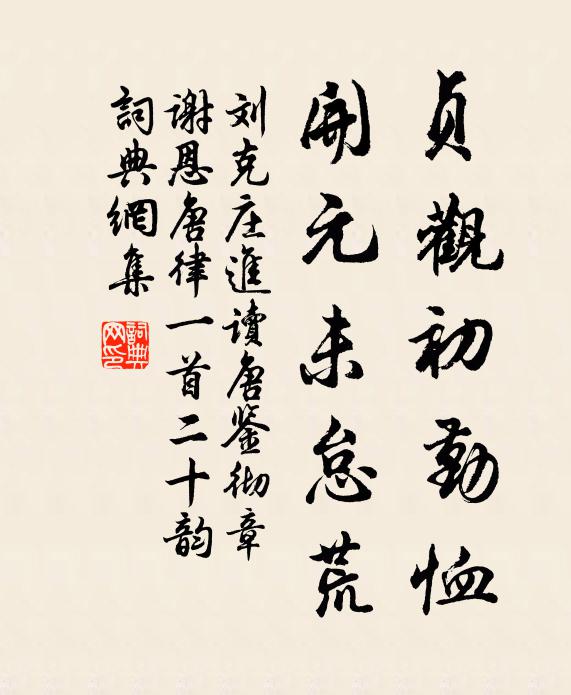 贞觀初勤恤
開元未怠荒
刘克庄進讀唐鉴彻章
谢恩唐律一首二十韵
詞典網集
詞典网印